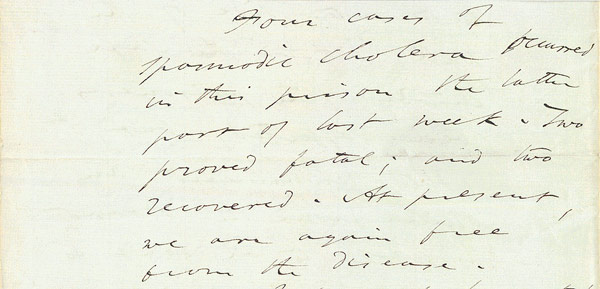 Four cases of
spasmodic cholera occurred
in this prison the latter
part of last week. Two
proved fatal; and two
recovered. At present,
we are again free
from the disease.